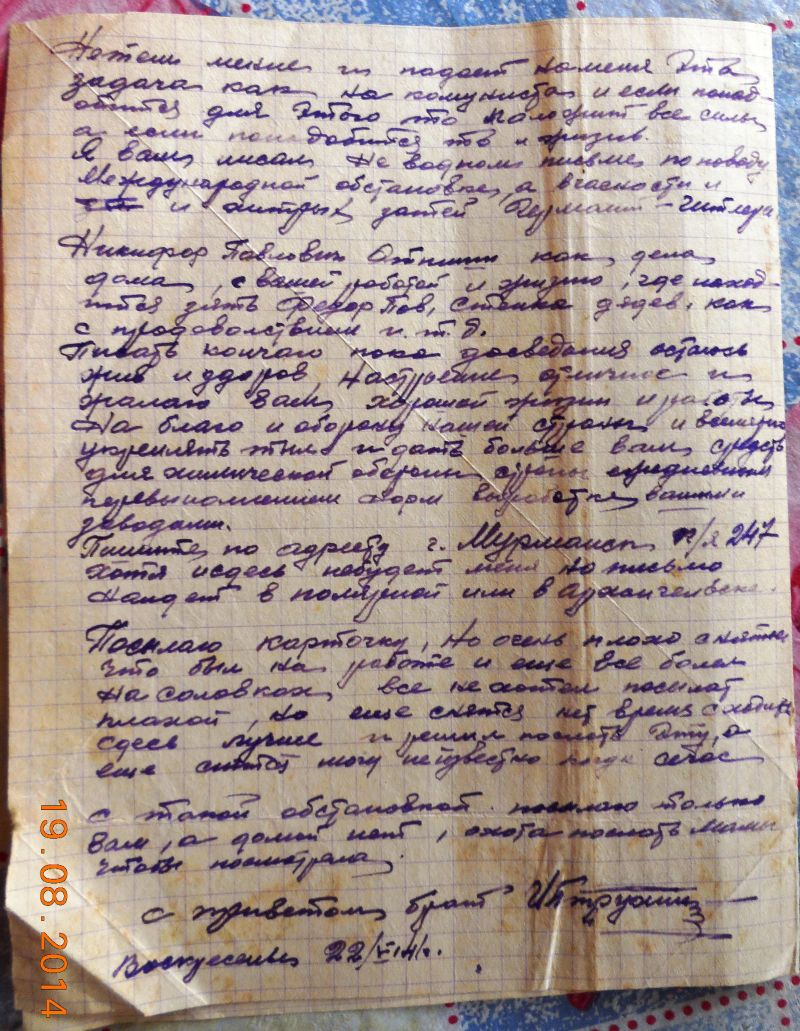 и падает на меня эта
задача как на комуниста и если понад-
обится для этого то положит все силы
а если понадобится то и жизнь.
Я вам писал не водном письме по поводу
Международной обстановке, а вчасности и
и хитрых затей Германии - Гитлера
Никифор Павлович Отпиши как дела
дома, с вашей работой и жизню, где наход-
ится зять Федор Пав, Стенка дядев, как
с продоволствием и. т. д.
Писать кончаю пока досведания остаюсь
жив и здоров Настроение отличное и
жалаю вам хорошей жизни и работы
На благо и оборону нашей страны и
укреплять тыл и дать больше вам средств
для химической обороны страны
перевыполнением норм выработке вашими
заводами.
Пишите по адресу г. Мурманск п/я 247
хотя издесь небудет меня но письмо
найдет в полярной или в Архангельске.
Посылаю карточку, но очень плохо снятые
что был на работе и еще все болел
на Соловках, все не хотел посылат
плахой, но еще снятся нет время
сдесь лучше и решил послать эту, а
еще снятся могу неизвестно когда сечас
с такой обстановкой. посылаю только
вам, а домой нет, охота послать Мамы
чтобы посмотрела.
с приветом брат
Воскресенье 22/VI
19.08.2014